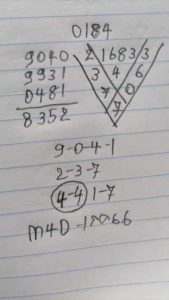 0184
9040 216833
9931 3 4 6
0481 7 0
8352 7
9-0-4-1
2-3-7
4-4 1-7